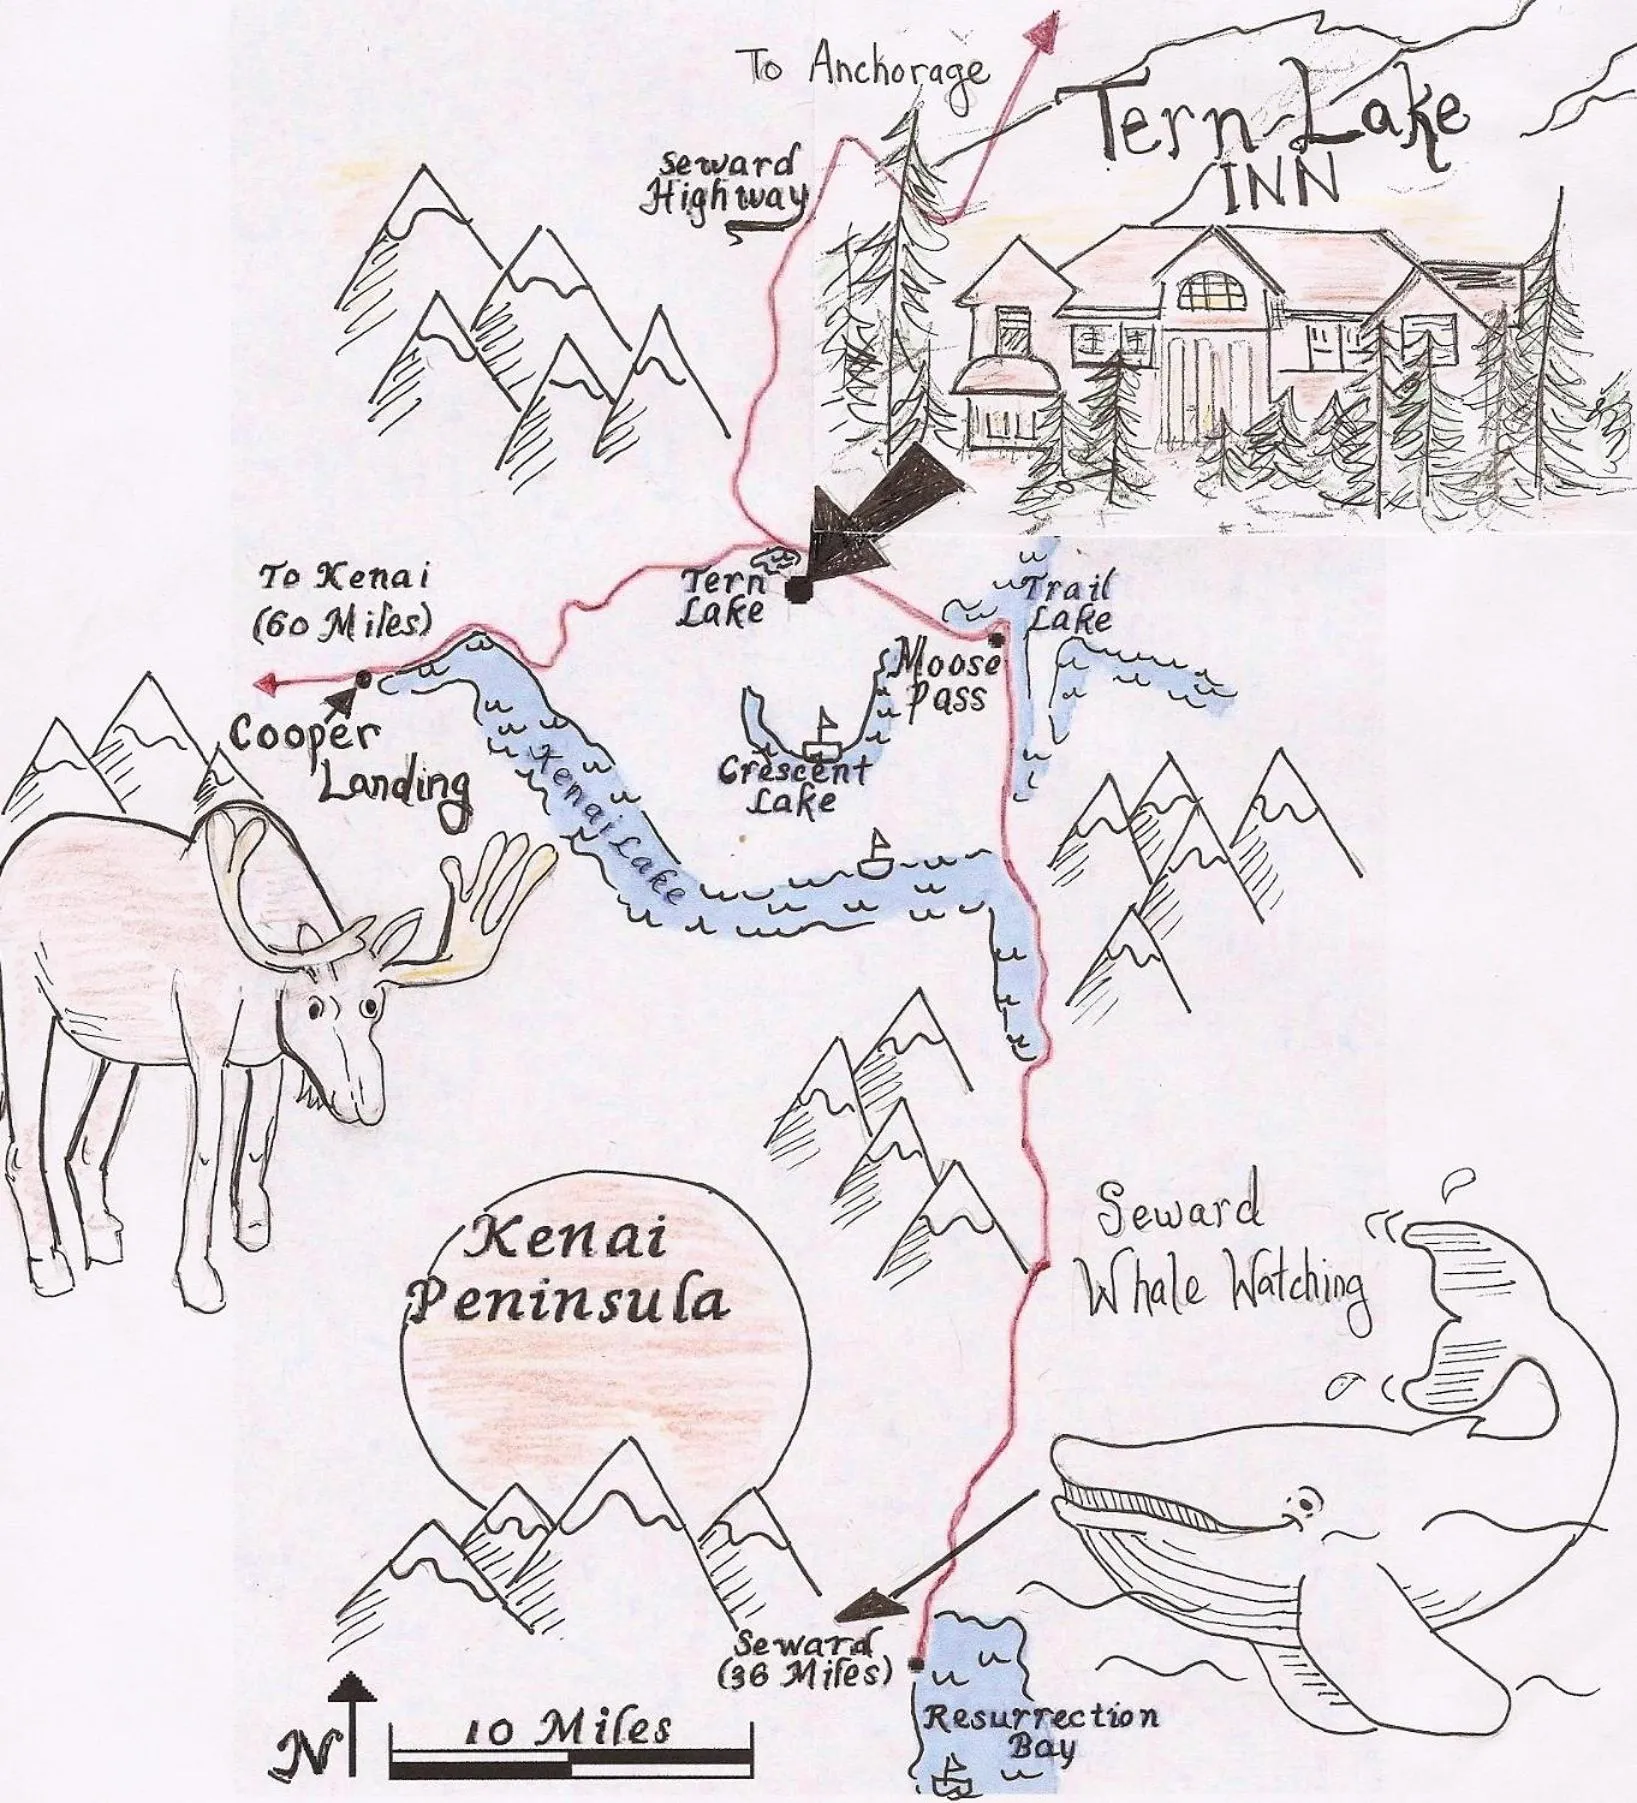 To Anchorage
Tern Lake
INN
Seward
Highway
To Kenai
(60 Miles)
Tern
Lake
Trail
Lake
Moose
Pass
Cooper
Landing
Crescent
Lake
Kenai Lake
Kenai
Peninsula
Seward
Whale Watching
Seward
(36 Miles)
Resurrection
Bay
N
10 Miles